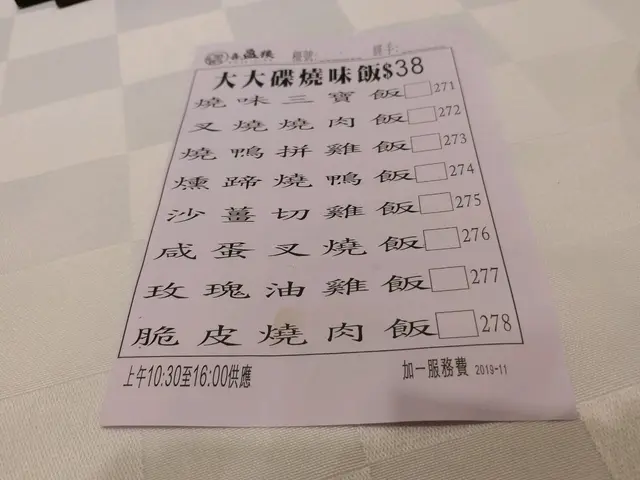 大大碟燒味飯$38
燒味三寶飯 271
叉燒燒肉飯 272
燒鴨拼雞飯 273
燻蹄燒鴨飯 274
沙薑切雞飯 275
咸蛋叉燒飯 276
玫瑰油雞飯 277
脆皮燒肉飯 278
上午10:30至16:00供應 加一服務費 2019-11